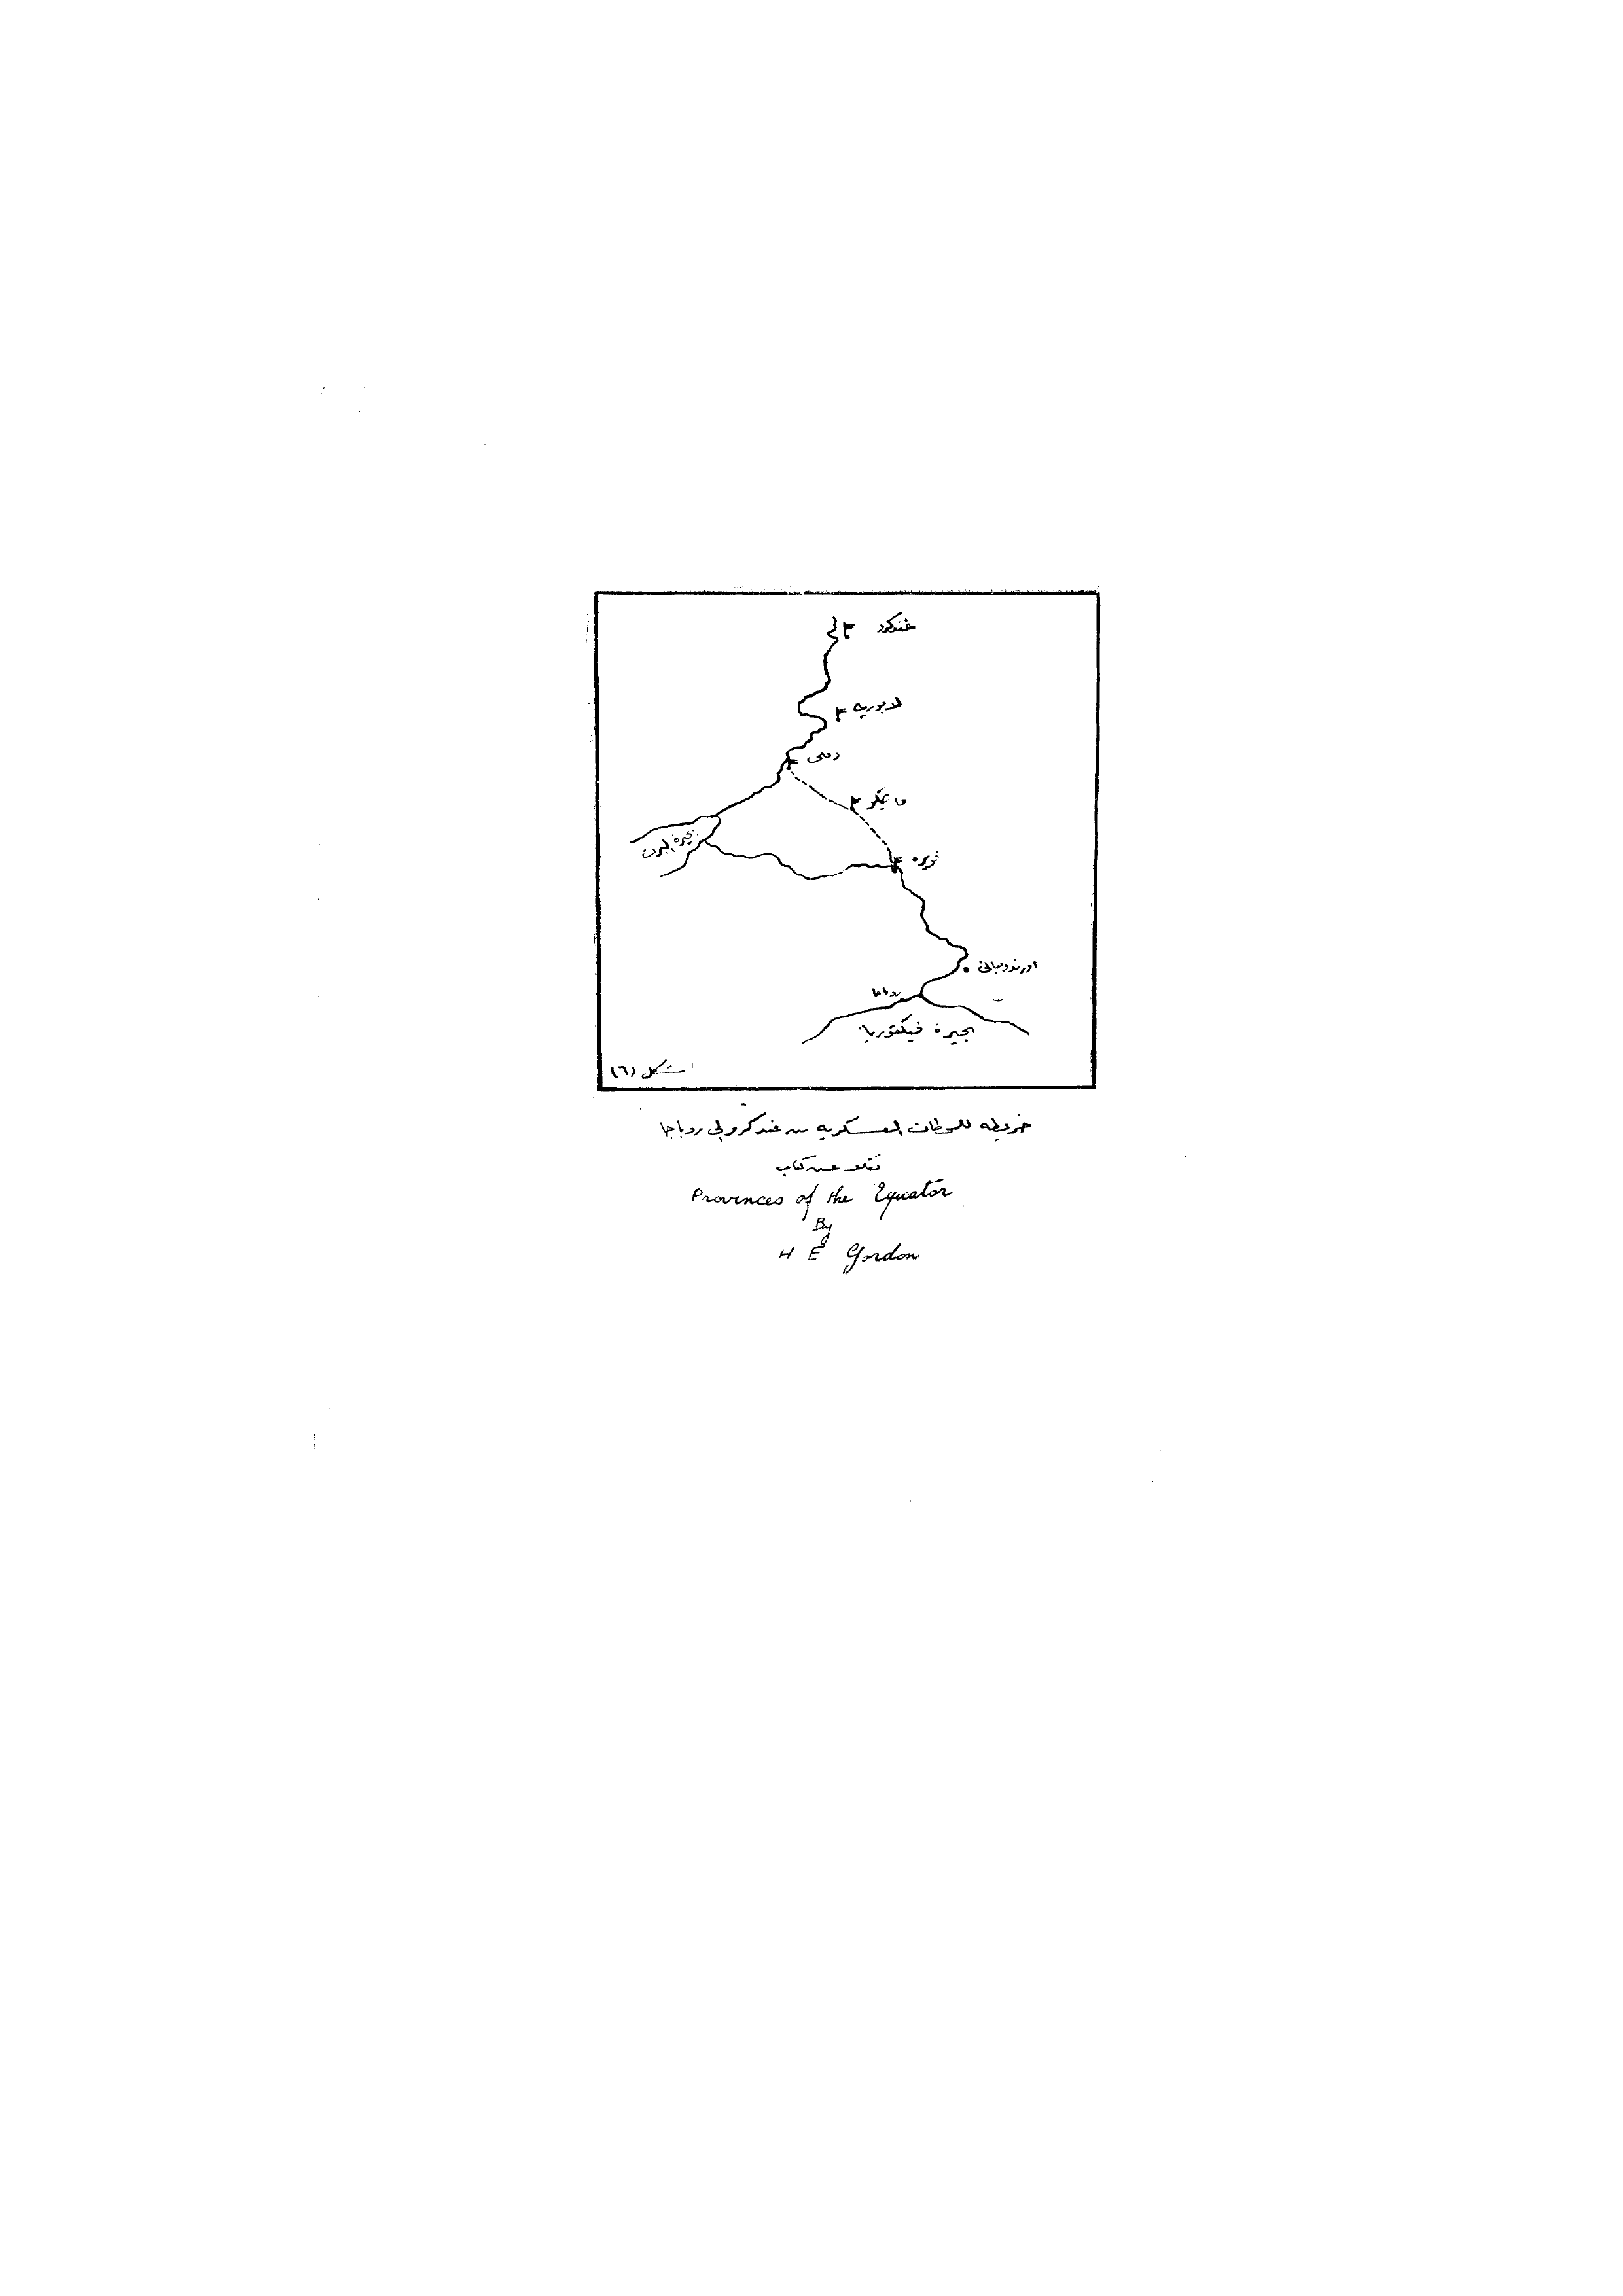 غندكرو
لابوريه
دفلى
فاتيكو
بحيرة البرت
فويره
اورندوجانى
روباجا
بحيرة فيكتوريا
شكل (٦)
خريطه للمحطات العسكريه من غندكرو إلى روباجا
نقلا عن كتاب
Provinces of the Equator
By
H E Gordon